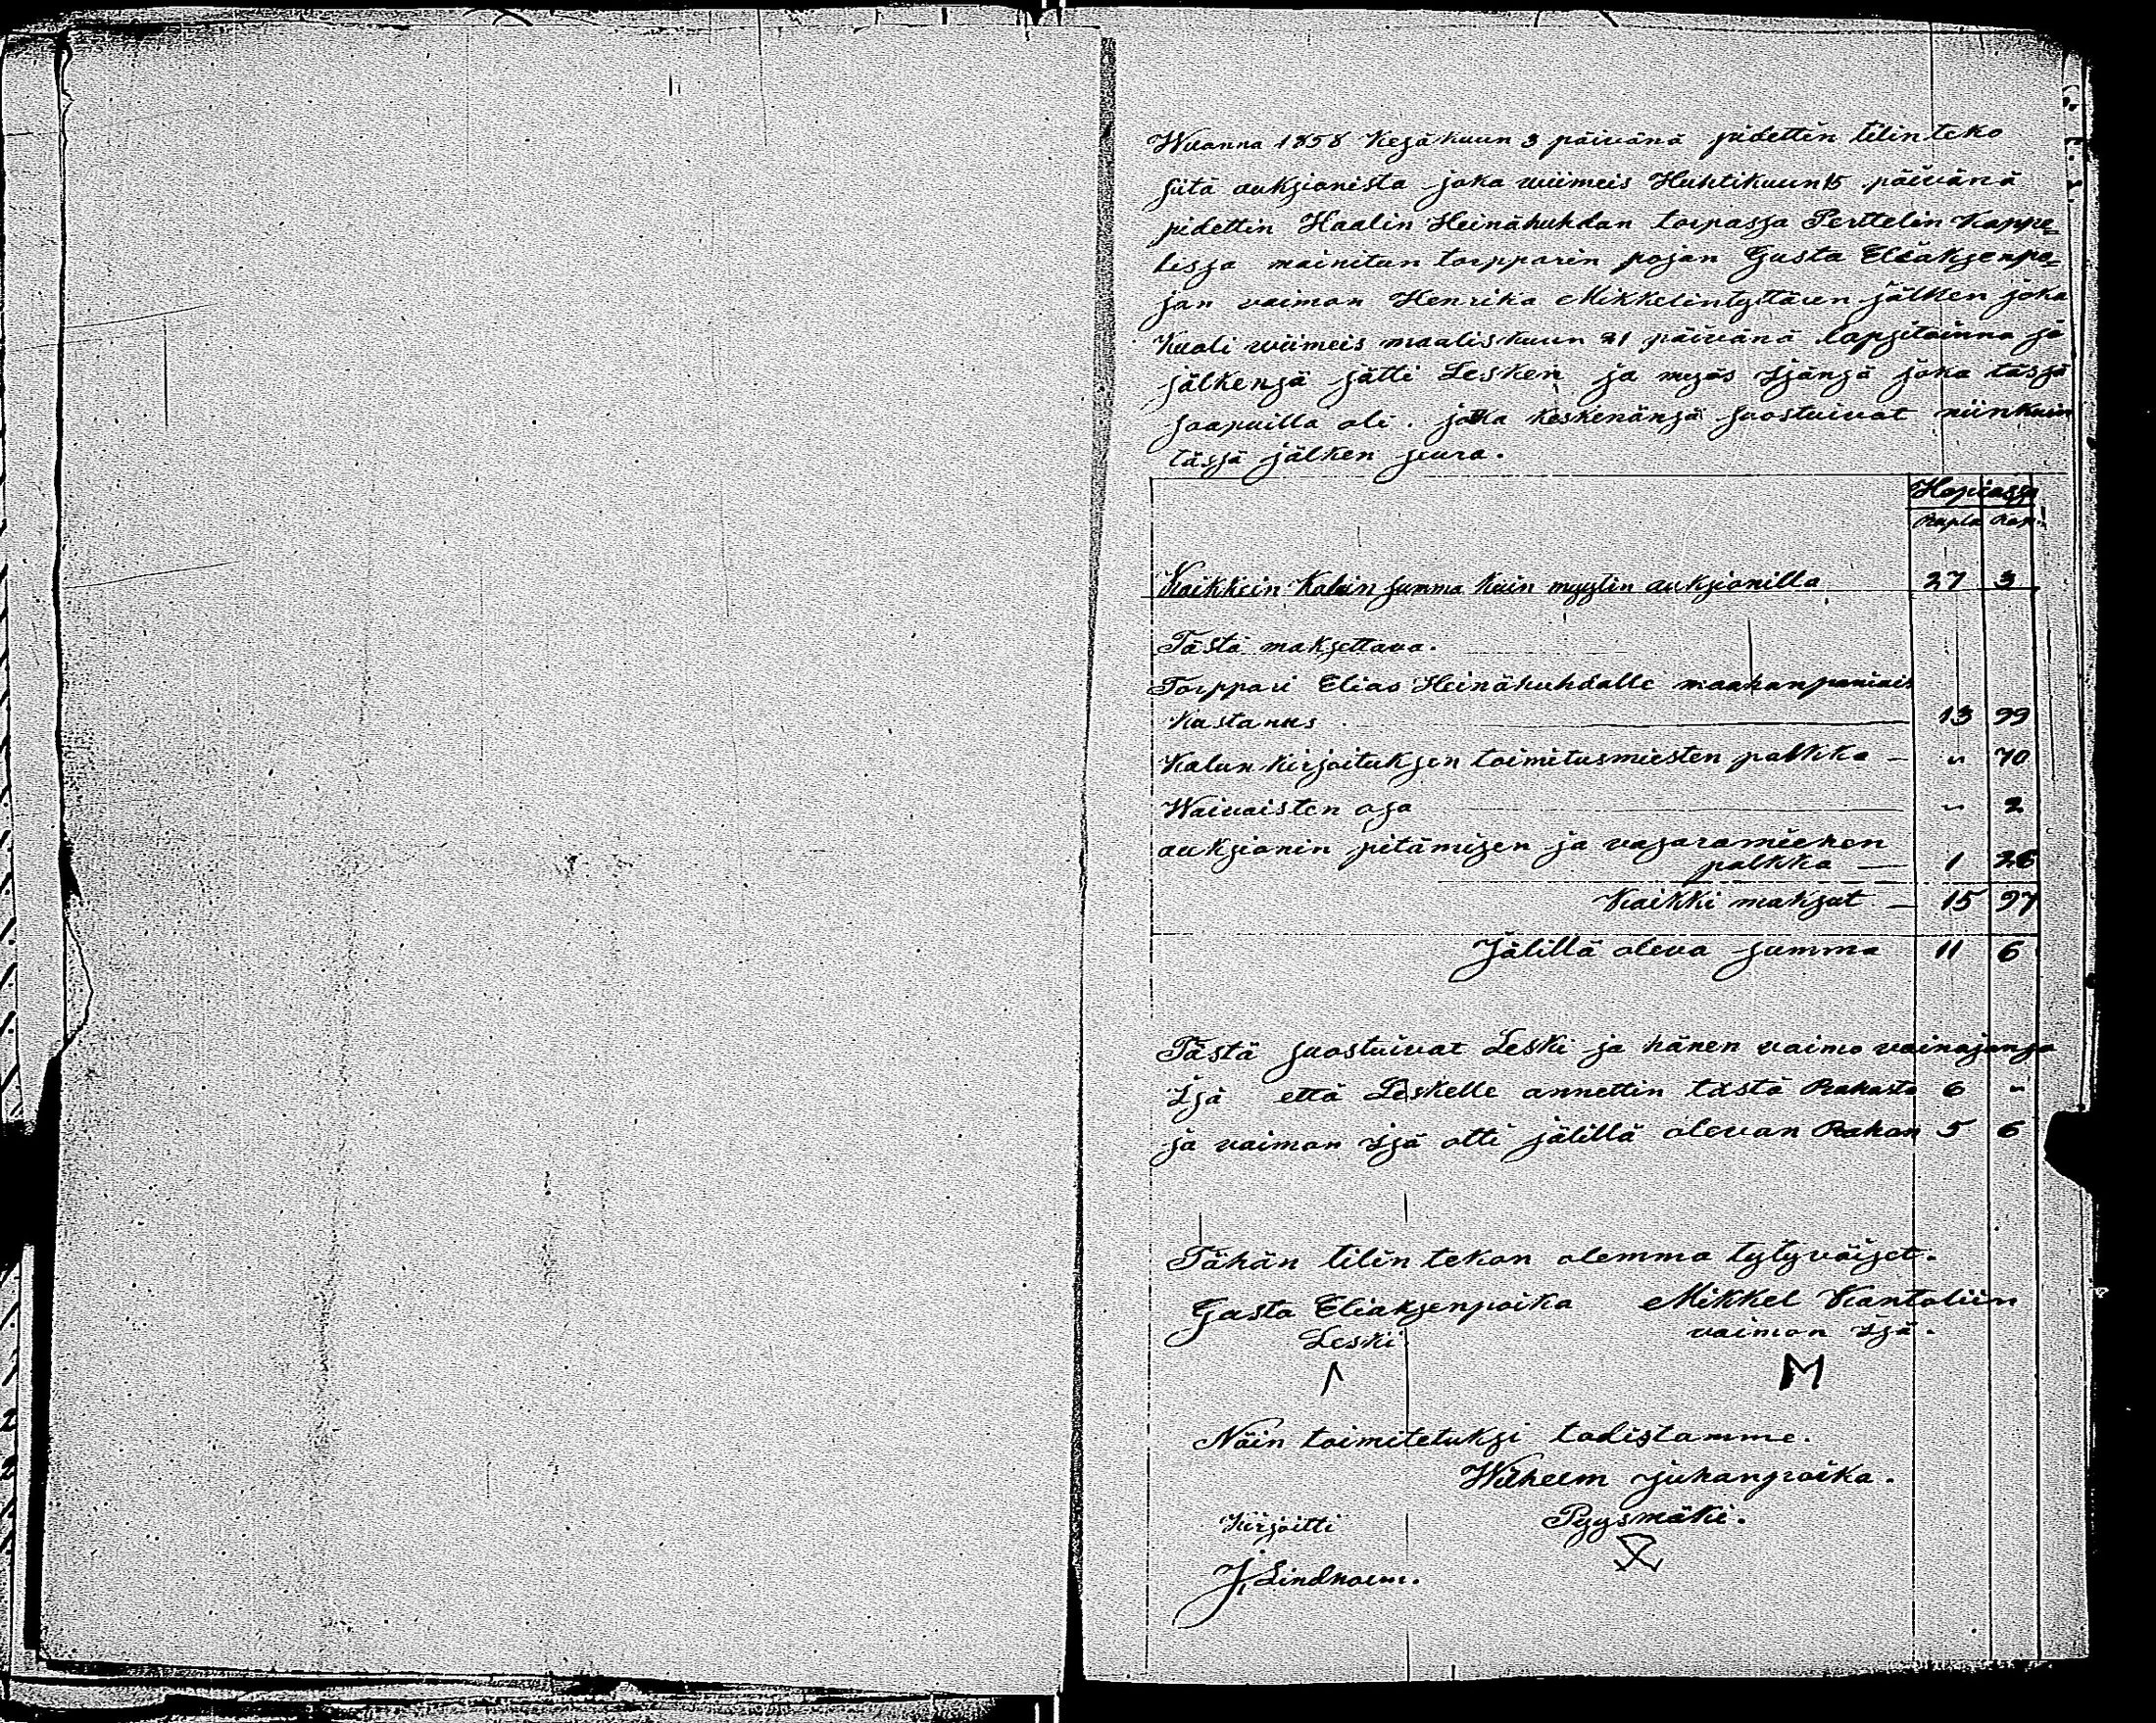 Wuonna 1858 Kesäkuun 3 päivänä pidettin tilin teko
siitä auksionista joka wiimeis Huhtikuun 15 päivänä
pidettin Haalin Heinähuhdan torpassa Perttelin Kappe=
lissa mainitun torpparin pojan Gusta Eliaksenpo=
jan vaimon Henrika Mikkelintyttären jälken joka
Kuoli wiimeis maaliskuun 21 päivänä lapsitoinna ja
jälkensä jätti Lesken ja myös Isänsä joka tässä
saapuilla oli. jotka keskenänsä suostuivat niinkuin
tässä jälken seura.
Hopiassa
Rupla Kop.
Kaikkein Kaluin summa kuin myytin auksionilla 27 3
Tästä maksettava.
Torppari Elias Heinähuhdalle maahanpaniais
Kustanus 13 99
Kalun kirjoituksen toimitusmiesten palkka — " 70
Waivaisten osa " 2
auksionin pitämisen ja vasaramiehen
palkka — 1 26
Kaikki maksut — 15 97
Jälillä oleva summa 11 6
Tästä suostuivat Leski ja hänen vaimo vainajansa
Isä että Leskelle annettin tästä Rahasta 6 "
ja vaimon Isä otti jälillä olevan Rahan 5 6
Tähän tilin tekon olemma tytyväiset.
Gusta Eliaksenpoika Mikkel Kantoliin
Leski vaimon Isä.
M
Näin toimitetuksi todistamme.
Wilhelm Juhanpoika.
Kirjoitti Pyysmäki.
J. Lindholm.